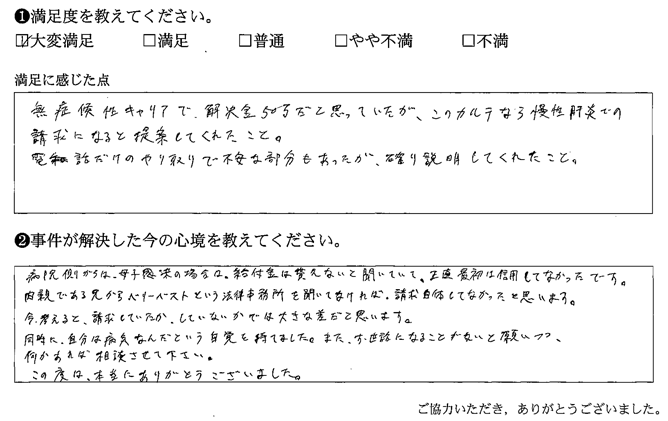 ❶満足度を教えてください。
☑大変満足 □満足 □普通 □やや不満 □不満
満足に感じた点
無症候性キャリアで、解決金50万だと思っていたが、このカルテなら慢性肝炎での
請求になると提案してくれたこと。
電話だけのやり取りで不安な部分もあったが、確り説明してくれたこと。
❷事件が解決した今の心境を教えてください。
病院側からは、母子感染の場合は、給付金は貰えないと聞いていて、正直最初は信用してなかったです。
肉親である兄からベリーベストという法律事務所を聞いてなければ、請求自体してなかったと思います。
今考えると、請求していたか、していないかでは大きな差だと思います。
同時に、自分は病気なんだという自覚を持てました。また、お世話になることがないと願いつつ、
何かあれば相談させて下さい。
この度は、本当にありがとうございました。
ご協力いただき，ありがとうございました。